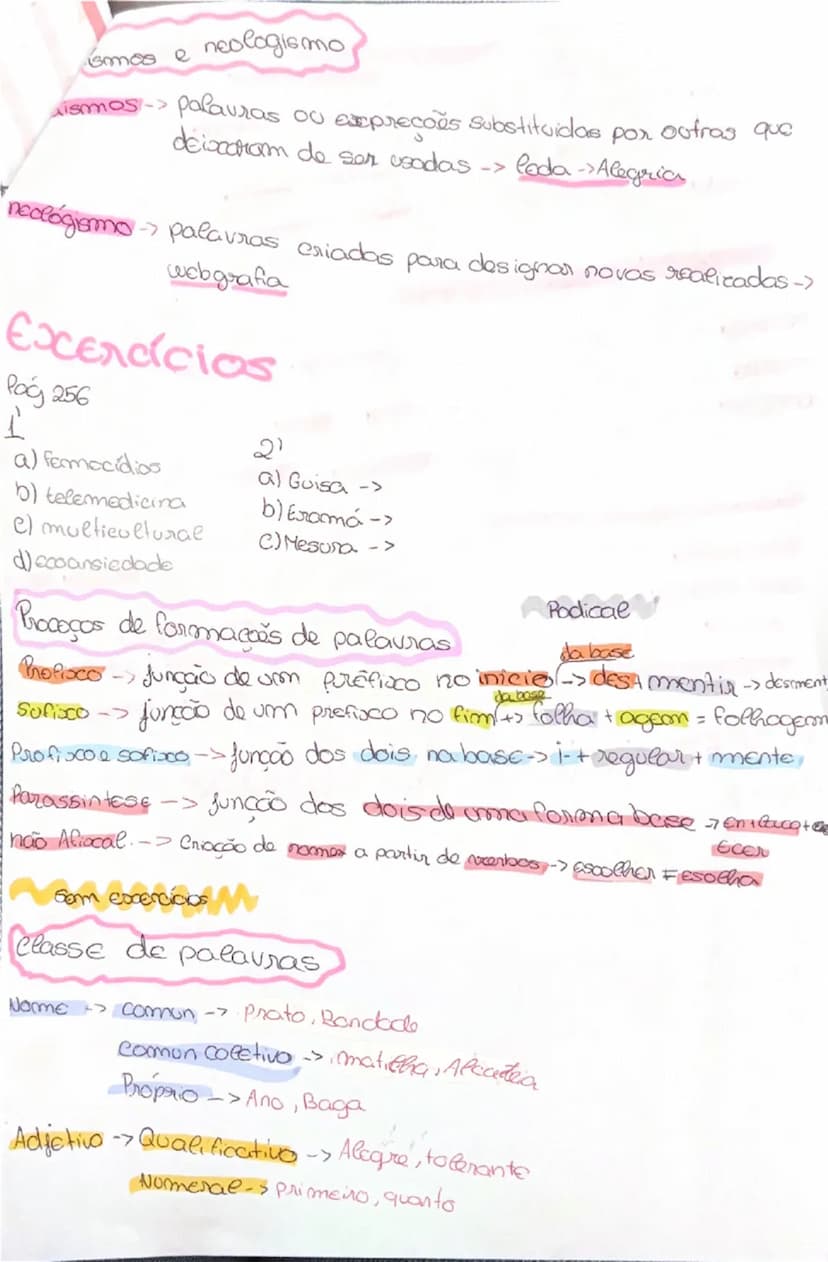 ismos e neologismo
uismos -> palavras ou expreções substituidas por outras que
deixaram de ser usadas -> leda -> Alegria
neológismo -> palavras criadas para designar novas realizadas ->
webgrafia
Excercícios
Pág 256
1
a) femocídios
b) telemedicina
c) multicultural
d) ecoansiedade
2
a) Guisa ->
b) Eramá ->
c) Mesura ->
Radical
Procoços de formações de palavras
da base
Prefixco -> junção de um préfixo no inicio -> des + mentir -> desment
da base
Sufixo -> junção de um prefixo no fim -> folha + agem = folhagem
Prefixo e sufixo -> junção dos dois na base -> i- + regular + mente
Parassintese -> junção dos dois de uma forma base ->
ecer
não Afiocal. -> Criação de nomes a partir de verbos -> escolher = esolha
Sem excercíos
Classe de palavras
Nome -> comun -> Prato, Bondade
comun coletivo -> matilha, Alcateia
Próprio -> Ano, Baga
Adjetivo -> Qualificativo -> Alegre, tolerante
Numeral -> primeiro, quarto